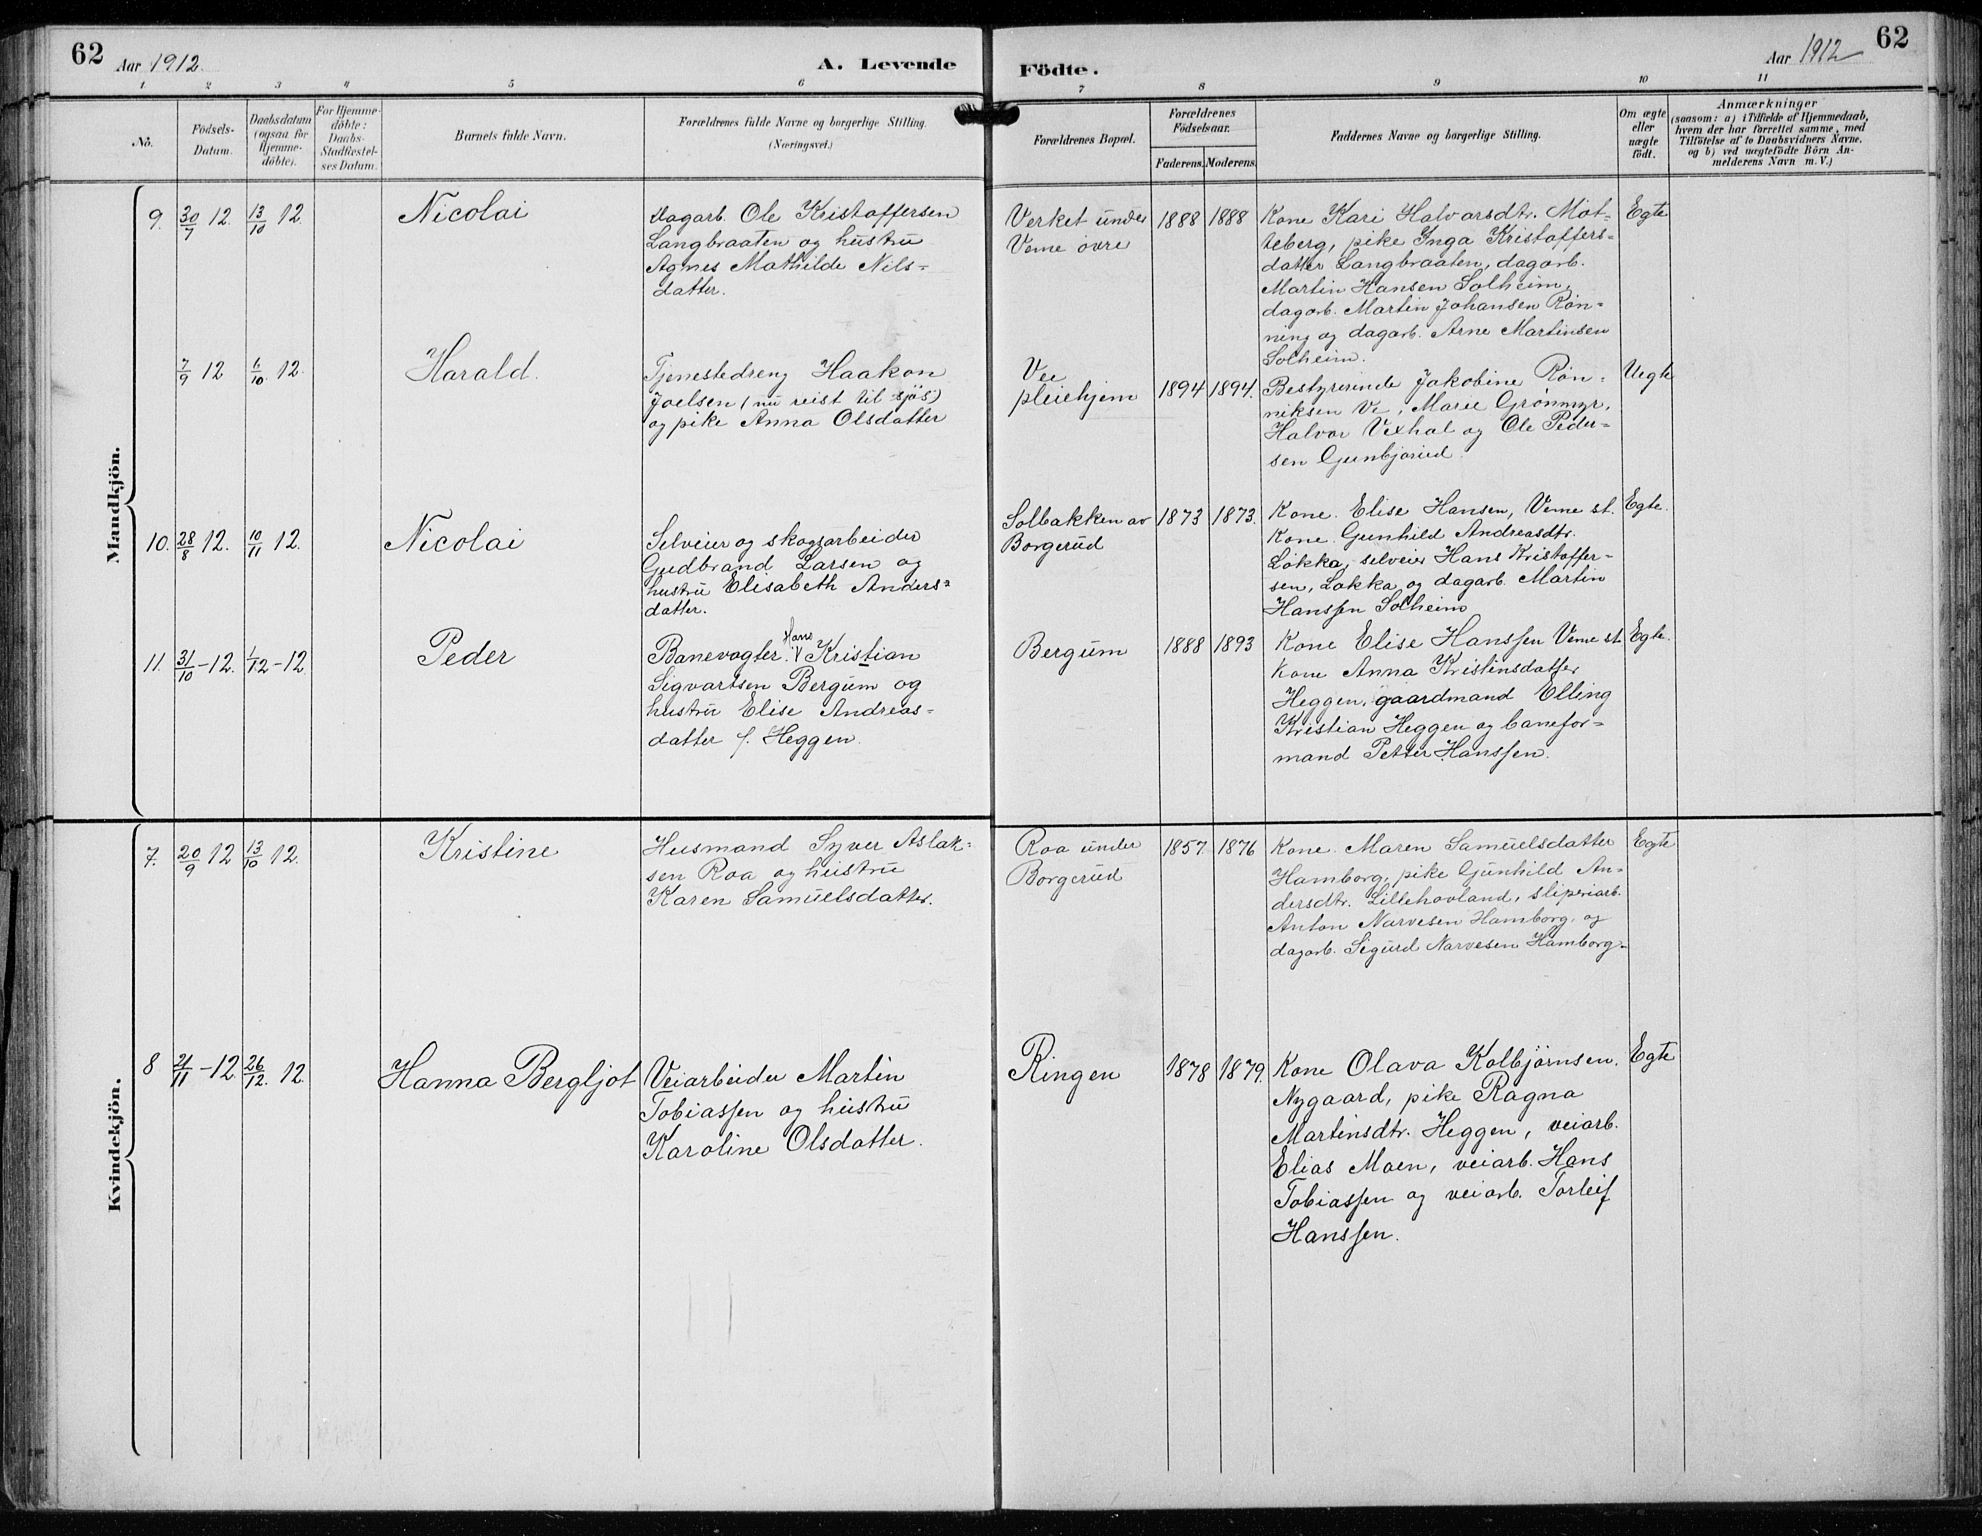 62
Aar 1912.
A. Levende
Födte.
Aar 1912
62
1 2 3 4 5 6 7 8 9 10 11
No.
Födsels-
Datum.
Daabsdatum
(ogsaa for
Hjemme-
döbte).
For Hjemme-
döbte:
Daabs-
Stadfæstel-
ses Datum.
Barnets fulde Navn.
Forældrenes fulde Navne og borgerlige Stilling.
(Næringsvei.)
Forældrenes Bopæl.
Forældrenes
Födselsaar.
Faderens. Moderens.
Faddernes Navne og borgerlige Stilling.
Om ægte
eller
uægte
födt.
Anmærkninger
(saasom: a) i Tilfælde af Hjemmedaab,
hvem der har forrettet samme, med
Tilföielse af to Daabsvidners Navne,
og b) ved uægtefödte Börn An-
melderens Navn m. V.)
Mandkjön.
9. 30/7 12. 13/10 12. Nicolai
Dagarb. Ole Kristoffersen
Langbraaten og hustru
Agnes Mathilde Nils-
datter.
Verket under
Veme övre
1888 1888
Kone Kari Halvorsdtr. Mot-
teberg, pike Inga Kristoffers-
datter Langbraaten, dagarb.
Martin Hansen Solheim,
dagarb. Martin Johansen Røn-
ning og dagarb. Arne Martinsen
Solheim.
Egte
7/9 12 6/10 12. Harald.
Tjenestedreng Haakon
Joelsen (nu reist til sjös)
og pike Anna Olsdatter
Vee
pleiehjem
1894 1894.
Bestyrerinde Jakobine Røn-
niksen Ve, Marie Grønmyr,
Halvor Vexhal og Ole Peder-
sen Gunbjørud.
Uegte
10. 28/8 12. 10/11 12. Nicolai
Selveier og skogsarbeider
Gudbrand Larsen og
hustru Elisabeth Anders-
datter.
Solbakken av
Borgerud
1873 1873.
Kone Elise Hansen, Veme st.
Kone Gunhild Andreasdtr.
Løkka, selveier Hans Kristoffer-
sen, Løkka og dagarb. Martin
Hanssen Solheim
Egte.
11. 31/10-12. 1/12-12 Peder
Hans
Banevogter Kristian
Sigvartsen Bergum og
hustru Elise Andreas-
datter f. Heggen.
Bergum
1888 1893
Kone Elise Hanssen Veme st.
Kone Anna Kristinsdatter
Heggen, gaardmand Elling
Kristian Heggen og banefor-
mand Petter Hanssen.
Egte.
Kvindekjön.
7. 20/9 12 13/10 12. Kristine
Husmand Syver Aslak-
sen Roa og hustru
Karen Samuelsdatter.
Roa under
Borgerud
1857. 1876
Kone Maren Samuelsdatter
Hamborg, pike Gunhild An-
dersdtr. Lillehovland, sliperiarb.
Anton Narvesen Hamborg og
dagarb. Sigurd Narvesen Hamborg.
Egte
8 21/11-12. 26/12. 12. Hanna Bergljot
Veiarbeider Martin
Tobiassen og hustru
Karoline Olsdatter.
Ringen
1878 1879.
Kone Olava Kolbjørnsen.
Nygaard, pike Ragna
Martinsdtr. Heggen, veiarb.
Elias Moen, veiarb. Hans
Tobiassen og veiarb. Torleif
Hanssen.
Egte